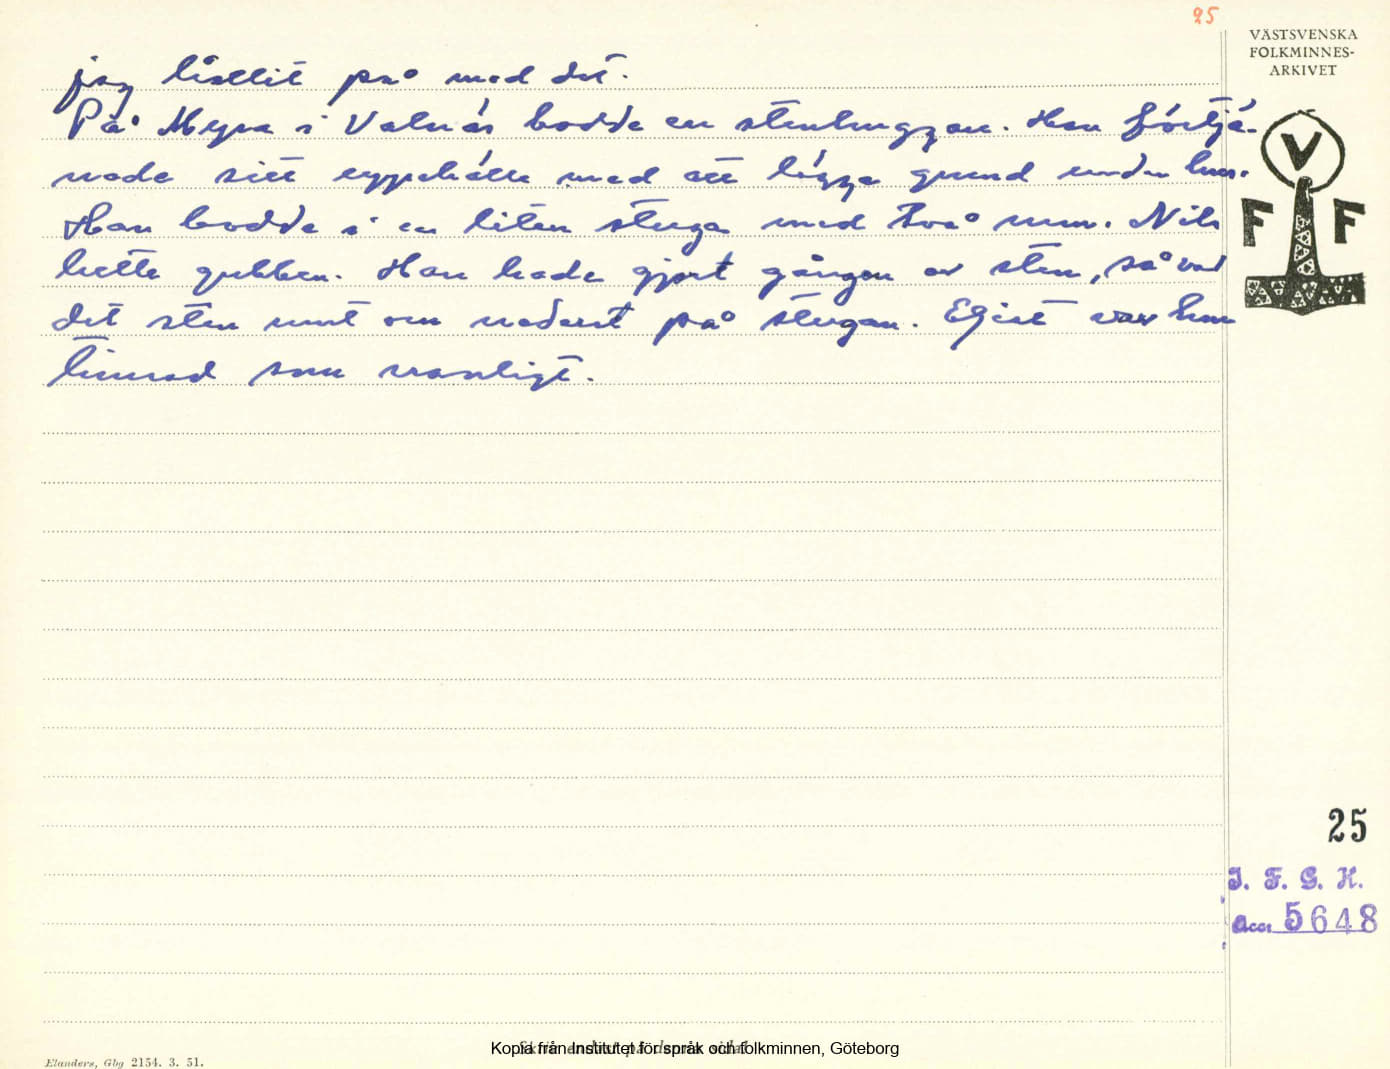 25
VÄSTSVENSKA
FOLKMINNES-
ARKIVET
jag hållit på med det.
På Myra i Valnäs bodde en stenhuggare. Han förtjä-
nade sitt uppehälle med att lägga grund under hus.
Han bodde i en liten stuga med två rum. Nils
hette gubben. Han hade gjort gången av sten, så var
det sten runt om nederst på stugan. Eljest var hon
timrad som vanligt.
V
F F
25
I. F. G. H.
Acc. 5648
Kopia från Institutet för språk och folkminnen, Göteborg
Elanders, Gbg 2154. 3. 51.